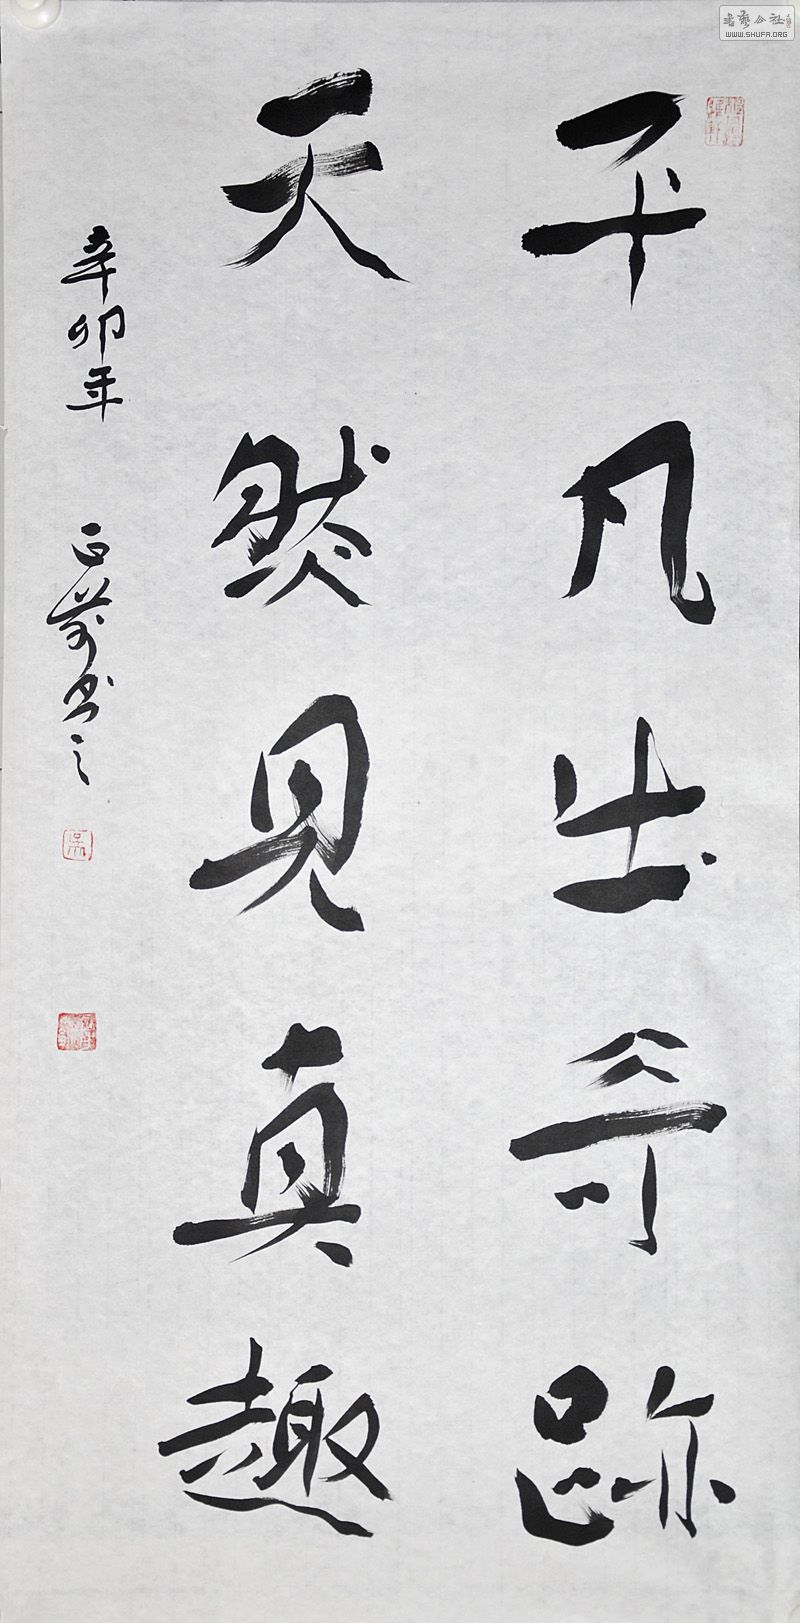 平凡出奇跡
天然見真趣
辛卯年 正荣书之
吴
书艺公社
WWW.SHUFA.ORG